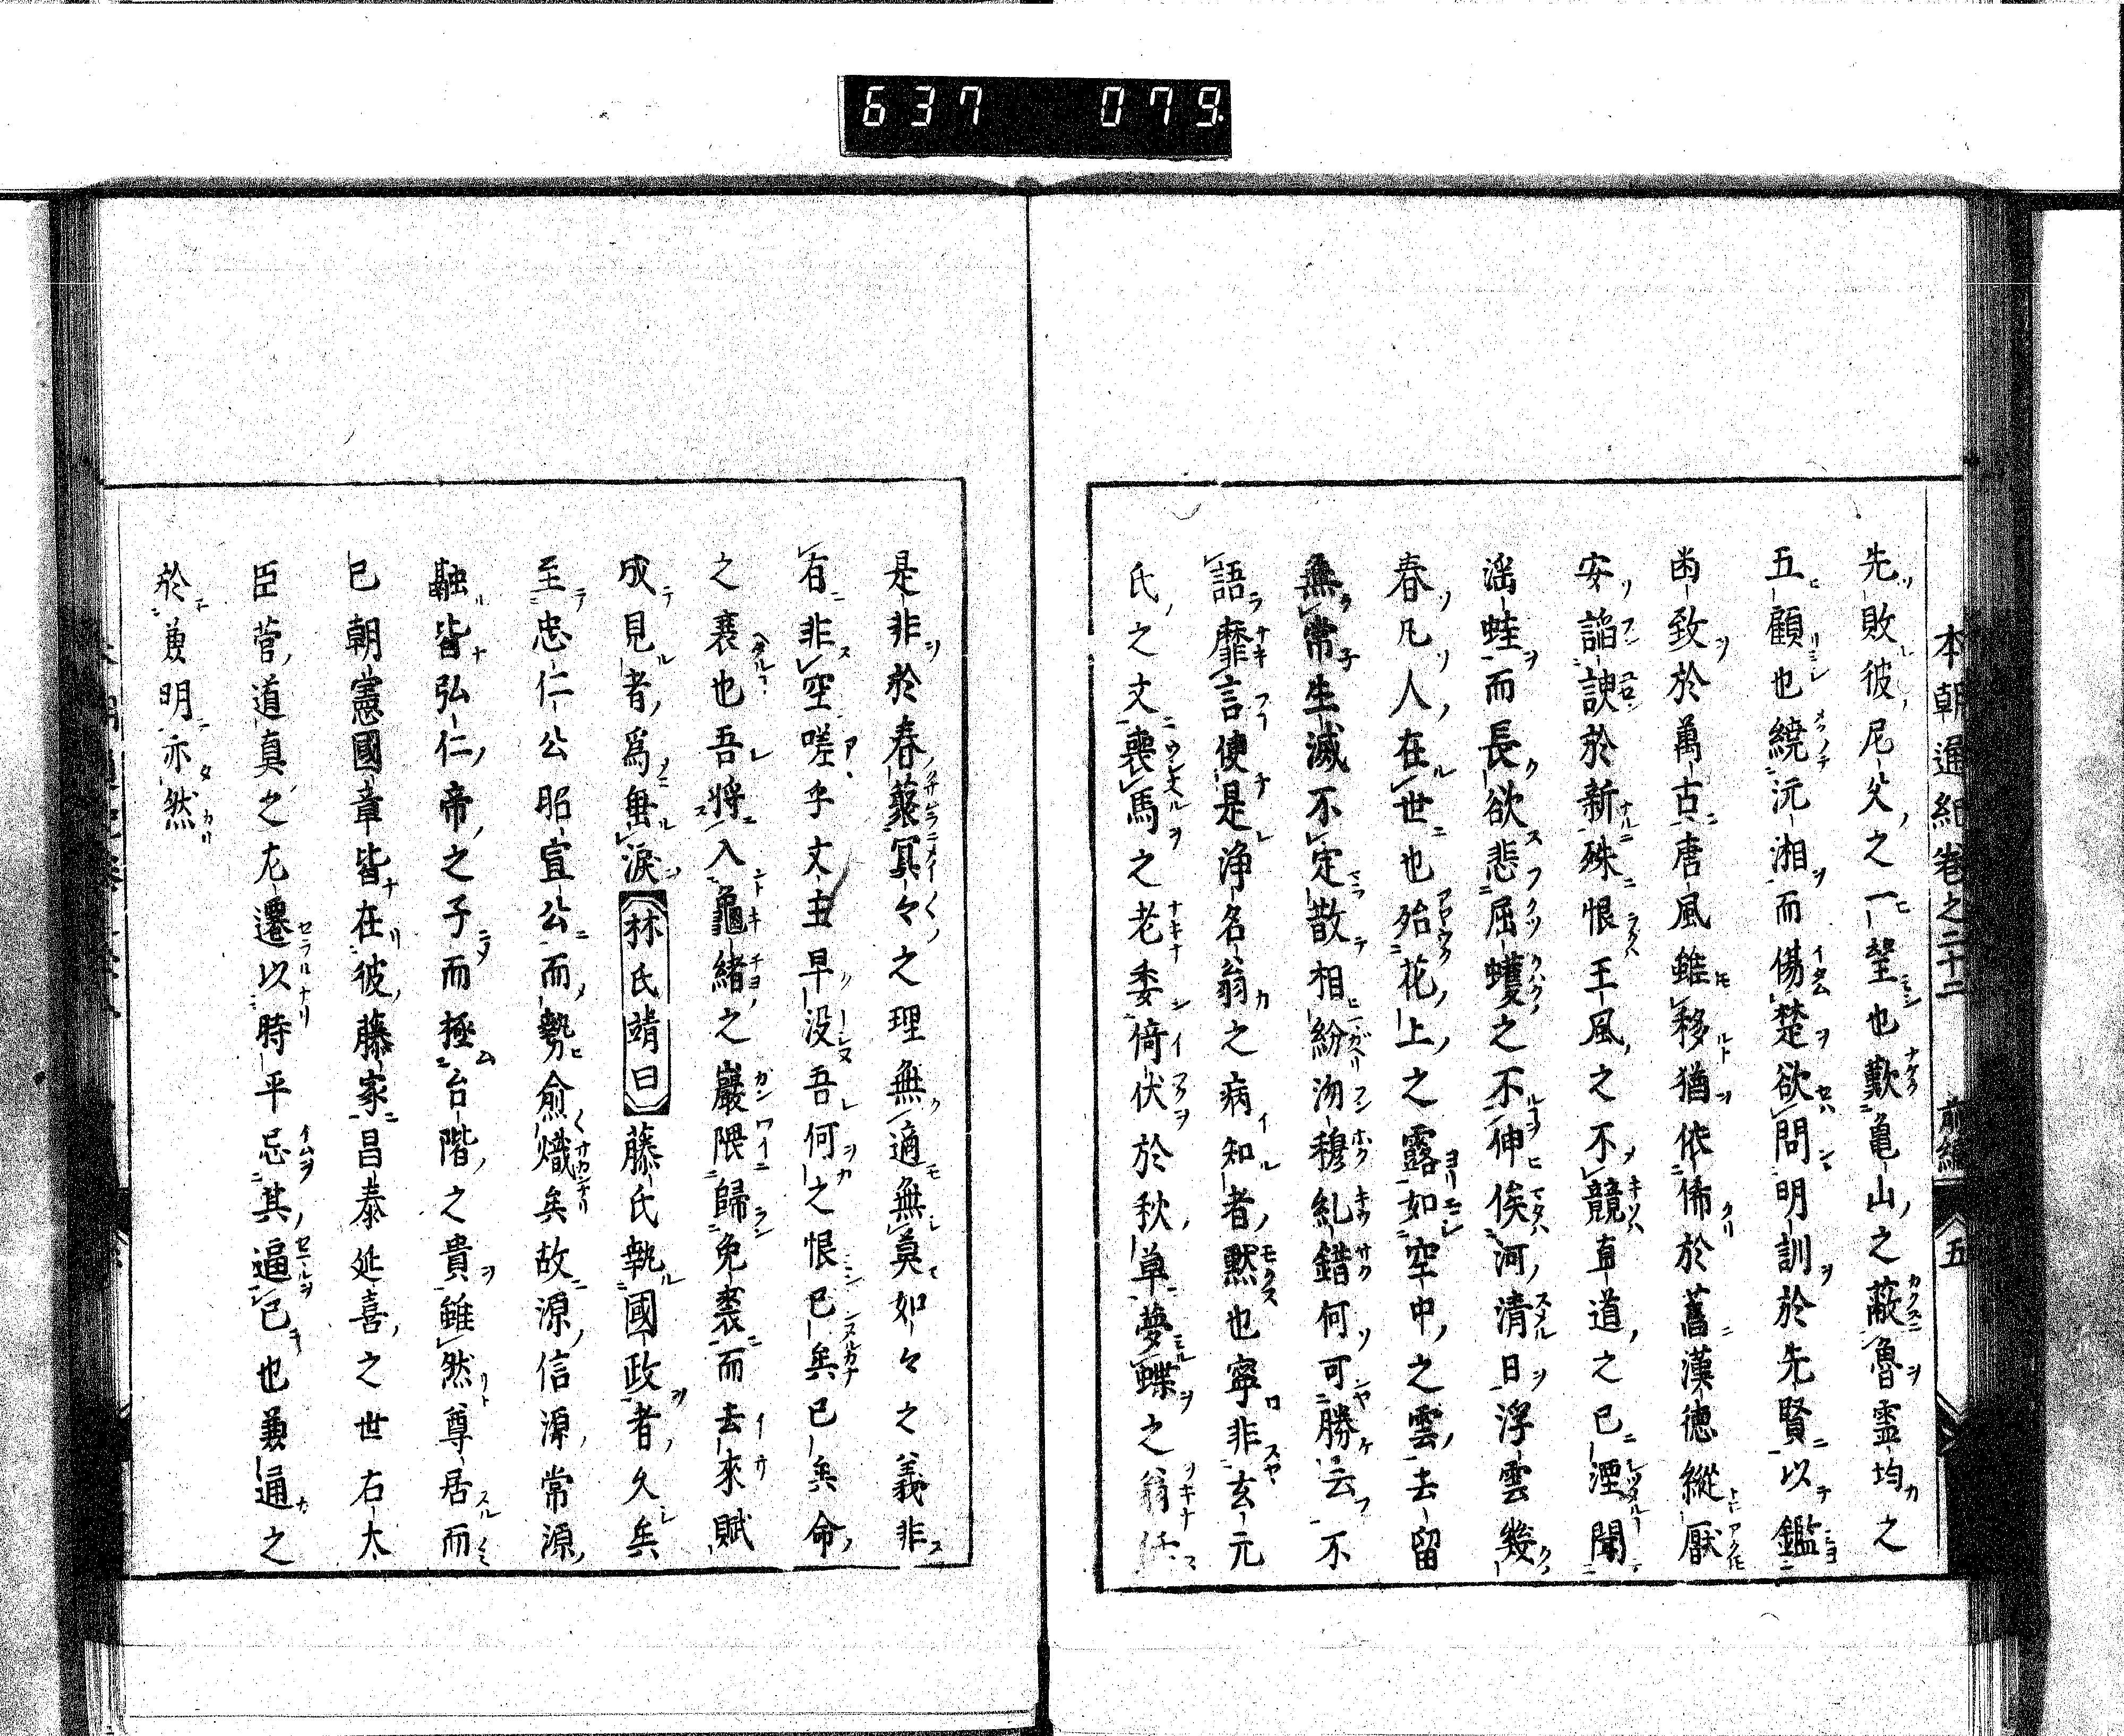 637 079
本朝通紀卷之二十二 前編 五
先敗彼尼父之一望也歎亀山之蔽魯霊均之
五顧也繞沅湘而傷楚欲問明訓於先賢以鑑
而致於萬古唐風雖移猶依俙於舊漢徳縱厭
安謟諛於新殊恨王風之不競直道之已湮聞
滛蛙而長欲悲屈蠖之不伸俟河清日浮雲幾
春凡人在世也殆花上之露如空中之雲去留
無常生滅不定散相紛沕穆糺錯何可勝云不
語靡言便是浄名翁之病知者黙也寧非玄元
氏之文喪馬之老委倚伏於秋草夢蝶之翁任
是非於春藂冥々之理無適無莫如々之義非
有非空嗟乎文主早没吾何之恨已矣已矣命
之衰也吾將入龜緒之巖隈歸兔裘而去來賦
成見者爲垂淚 林氏靖曰 藤氏執國政者久矣
至忠仁公昭宣公而勢愈熾矣故源信源常源
融皆弘仁帝之子而極台階之貴雖然尊居而
已朝憲國章皆在彼藤家昌泰延喜之世右大
臣菅道真之左遷以時平忌其逼已也兼通之
於兼明亦然